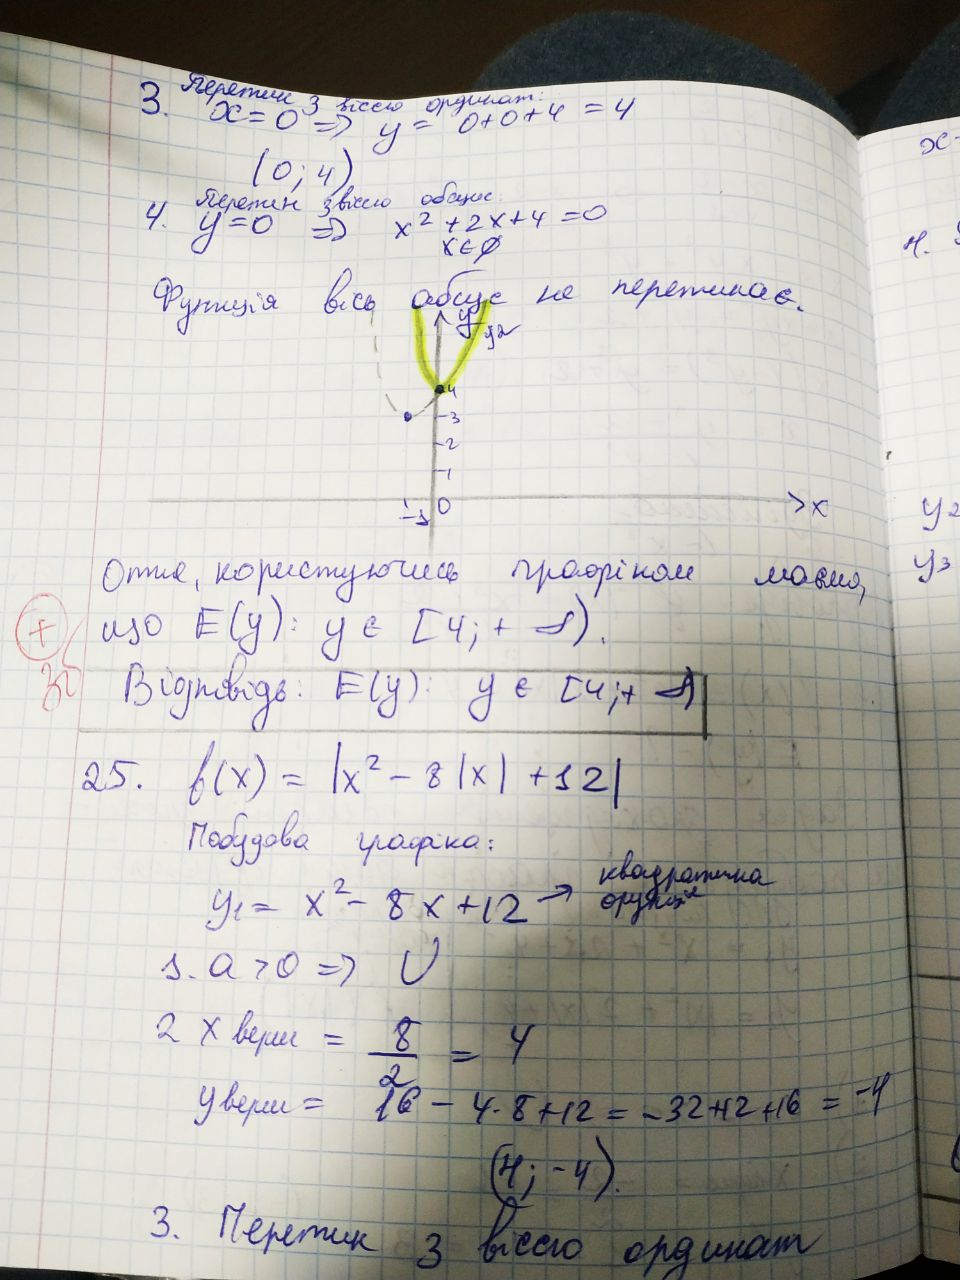 3. Перетин з віссю ординат:
x = 0 => y = 0+0+4 = 4
(0; 4)
4. Перетин з віссю абсцис:
y=0 => x² + 2x + 4 = 0
x ∈ ∅
Функція вісь абсцис не перетинає.
y
y2
4
3
2
1
-1 0 x
Отже, користуючись графіком маємо,
що E(y): y ∈ [4; + ∞).
Відповідь: E(y): y ∈ [4; + ∞)
25. f(x) = |x² - 8|x| + 12|
Побудова графіка:
y1 = x² - 8x + 12 → квадратична
функція
1. a > 0 => ∪
2 x верш = 8/2 = 4
y верш = 16 - 4·8 + 12 = -32+12+16 = -4
(4; -4).
3. Перетин з віссю ординат
x
4.
y2
y3